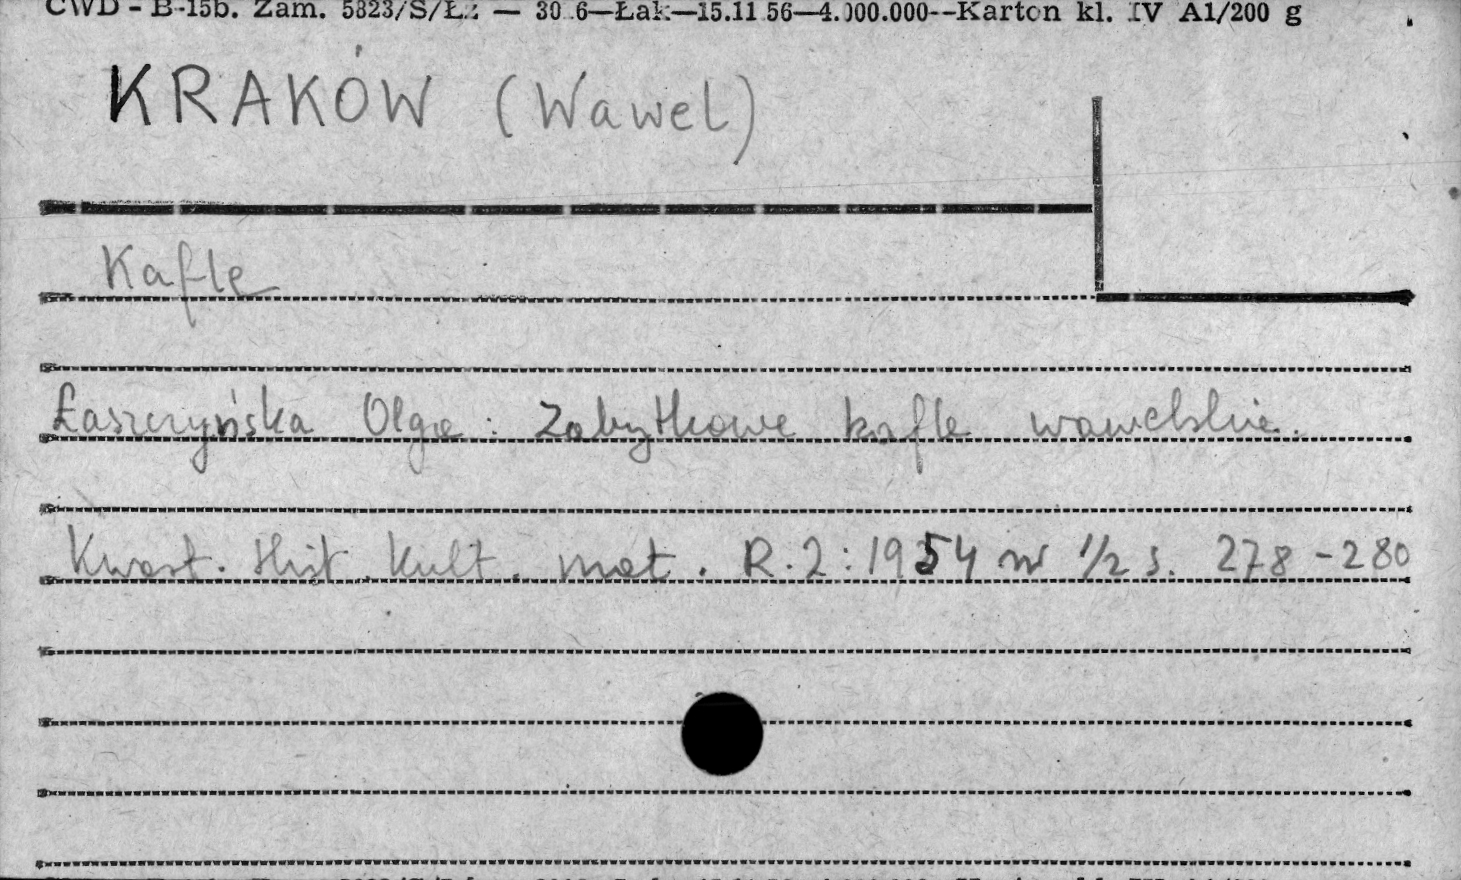 CWD - B-15b. Zam. 5823/S/Łz — 30.6—Łak—15.11.56—4.000.000--Karton kl. IV A1/200 g
KRAKÓW (Wawel)
Kafle
Łaszczyńska Olga: Zabytkowe kafle wawelskie.
Kwart. Hist. Kult. mat. R.2:1954 nr 1/2 s. 278-280